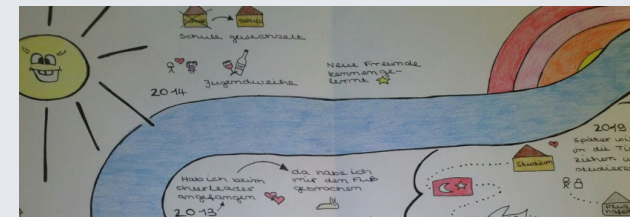 Schule gewechselt
Jugendweihe
2014
Neue Freunde
kennenge-
lernt
Hab ich beim
cheerleader
angefangen
2013
da habe ich
mir den Fuß
gebrochen
2019
später wi
in die Tü
ziehen u
studiere
Studium
Flug
hafen